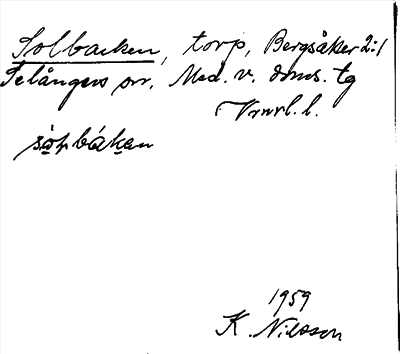 Solbacken, torp, Bergsåker 2:1
Selångers sn, Med. v. doms. tg
Vrnrl. l.
sòḷbákan
1959
K. Nilsson